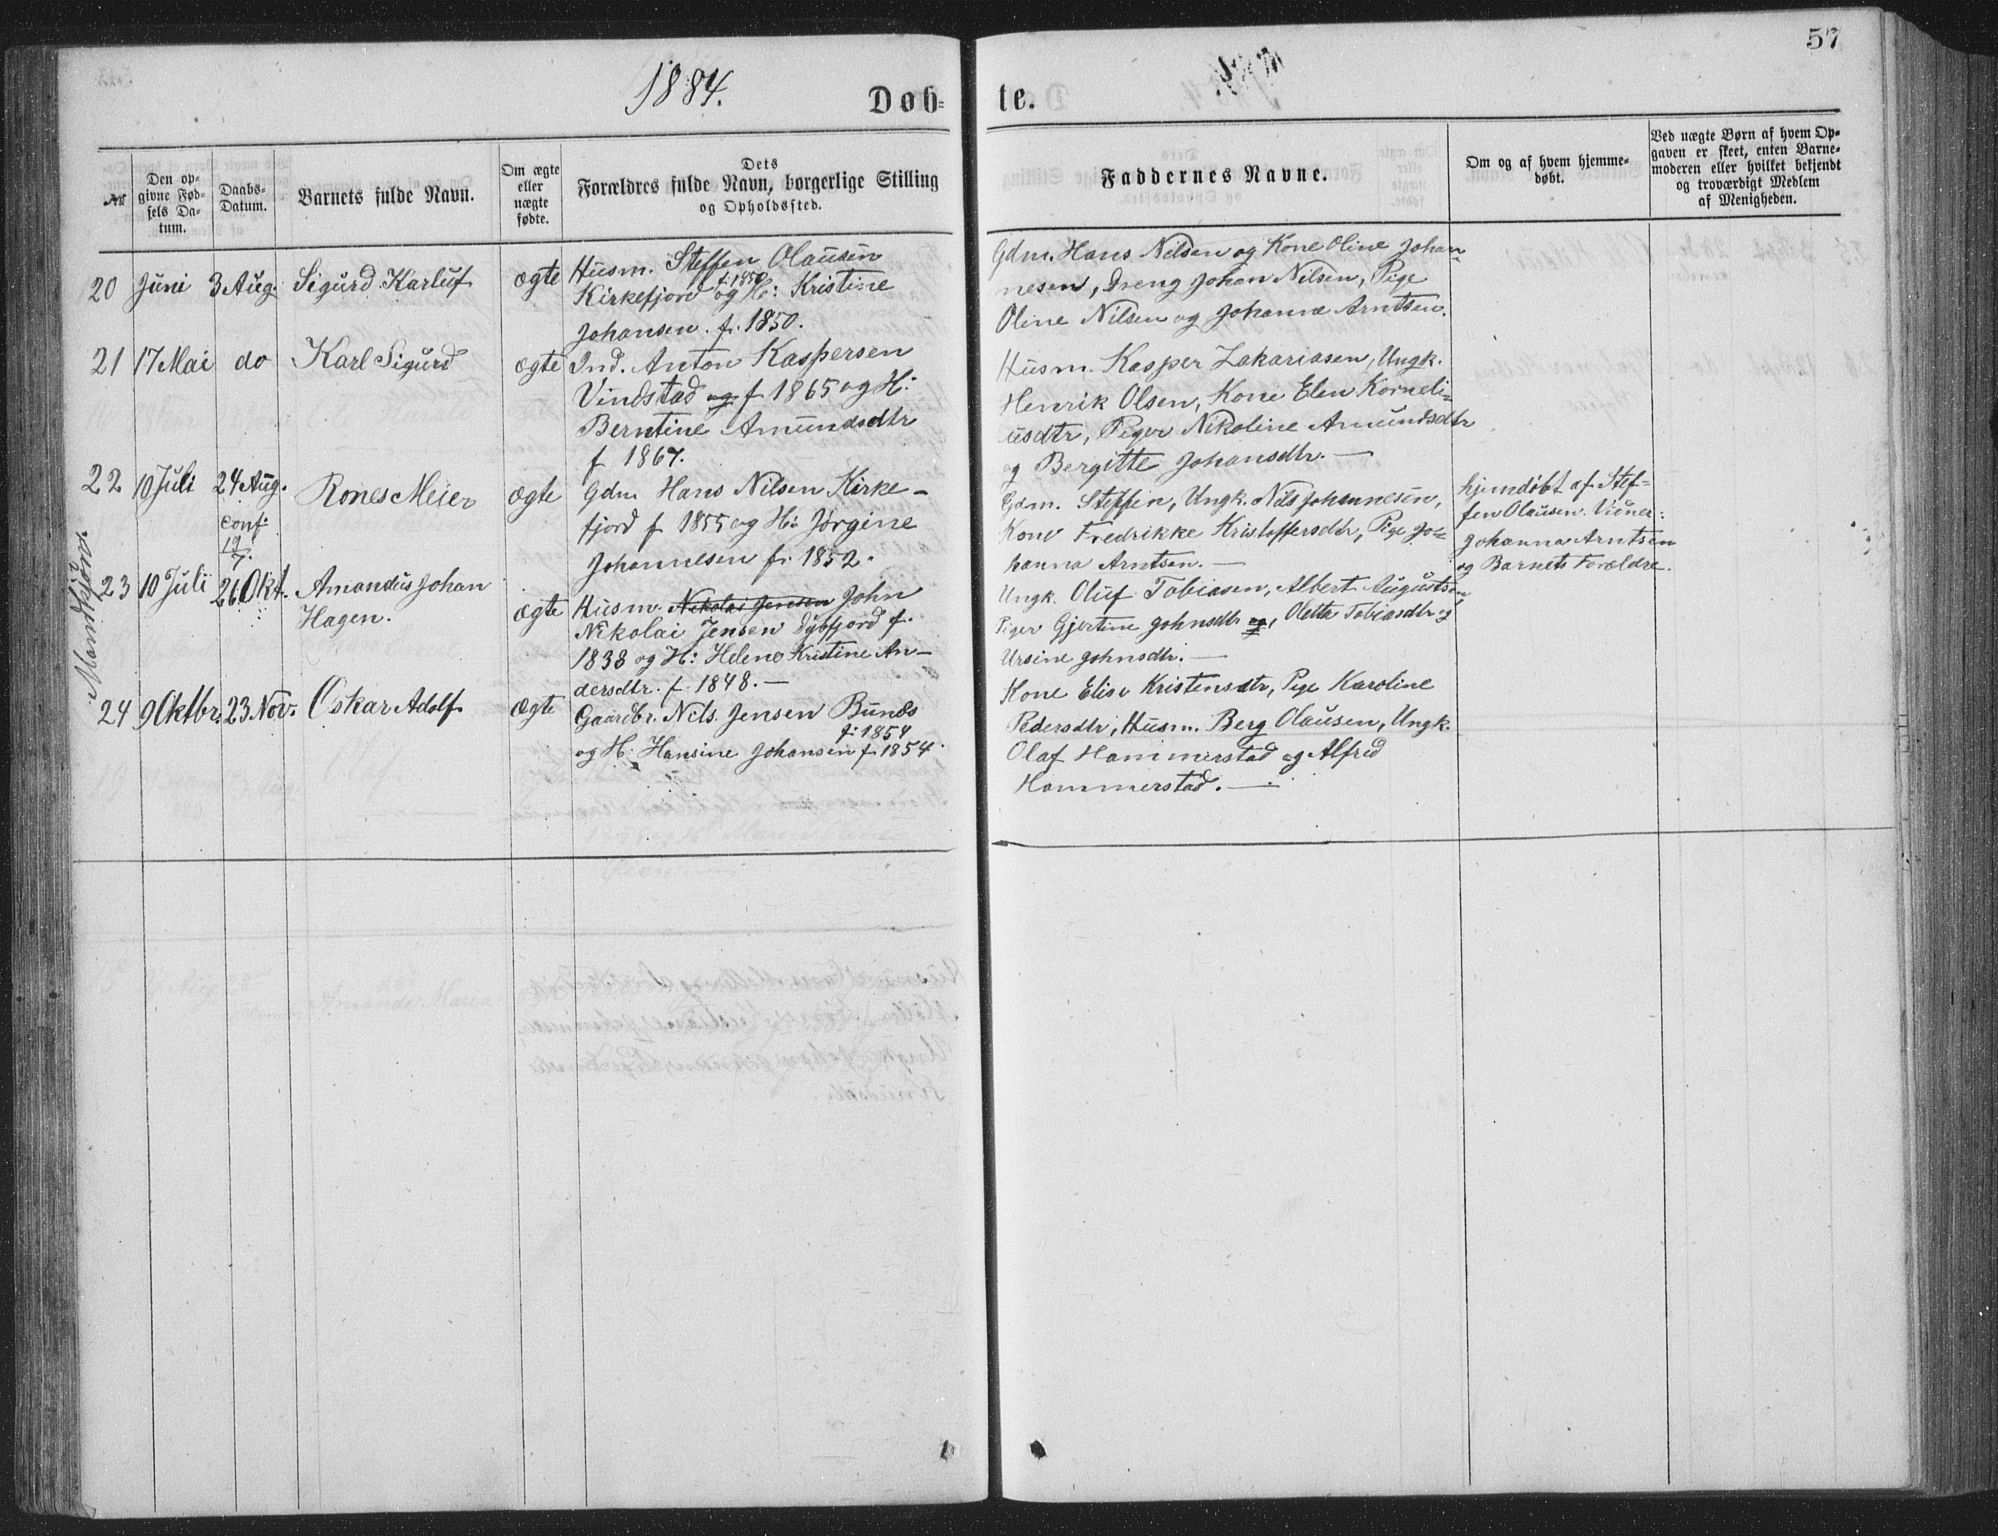 57
1884.
Døb=
te.
№
Den op-
givne Fød-
sels Da-
tum.
Daabs-
Datum.
Barnets fulde Navn.
Om ægte
eller
uægte
fødte.
Dets
Forældres fulde Navn, borgerlige Stilling
og Opholdssted.
Faddernes Navne.
Om og af hvem hjemme-
døbt.
Ved uægte Børn af hvem Op-
gaven er skeet, enten Barne-
moderen eller hvilket bekjendt
og troværdigt Medlem
af Menigheden.
Mandkjøn.
20 Juni 3 Aug. Sigurd Karluf ægte
Husm. Steffen Olausen
f. 1850
Kirkefjord og H: Kristine
Johansen. f. 1850.
Gdm. Hans Nilsen og Kone Oline Johan-
nesen, Dreng Johan Nilsen, Pige
Oline Nilsen og Johanna Arntsen.
21 17 Mai do Karl Sigurd ægte
Ind. Anton Kaspersen
Vindstad og f 1865 og H:
Berntine Amundsdtr
f 1867.
Husm. Kasper Zakariasen, Ungk.
Henrik Olsen, Kone Elen Korneli=
usdtr, Piger Nikoline Amundsdtr
og Bergitte Johansdtr. —
22 10 Juli 24 Aug. Rones Meier ægte
conf:
19/7.
Gdm Hans Nilsen Kirke-
fjord f 1855 og H: Jørgine
Johannesen f. 1852.
Gdm. Steffen, Ungk. Nils Johannesen,
Kone Fredrikke Kristoffersdtr, Pige Jo=
hanna Arntsen. —
hjemdøbt af Stef-
fen Olausen. Vidner:
Johanna Arntsen
og Barnets Forældre.
23 10 Juli 26 Okt. Amandus Johan
Hagen.
ægte
Husm. Nikolai Jensen John
Nikolai Jensen Dybfjord f.
1838 og H: Helene Kristine An-
dersdtr. f. 1848. —
Ungk. Oluf Tobiasen, Albert Augustsen
Piger Gjertine Johnsdtr og, Oletta Tobiasdtr og
Ursine Johnsdtr. —
24 9 Oktbr. 23 Nov. Oskar Adolf ægte
Gaardbr. Nils Jensen Bunes
f. 1854
og H: Hansine Johansen f. 1854.
Kone Elise Kristensdtr, Pige Karoline
Pedersdtr, Husm. Berg Olausen, Ungk.
Olaf Hammerstad og Alfred
Hammerstad. —